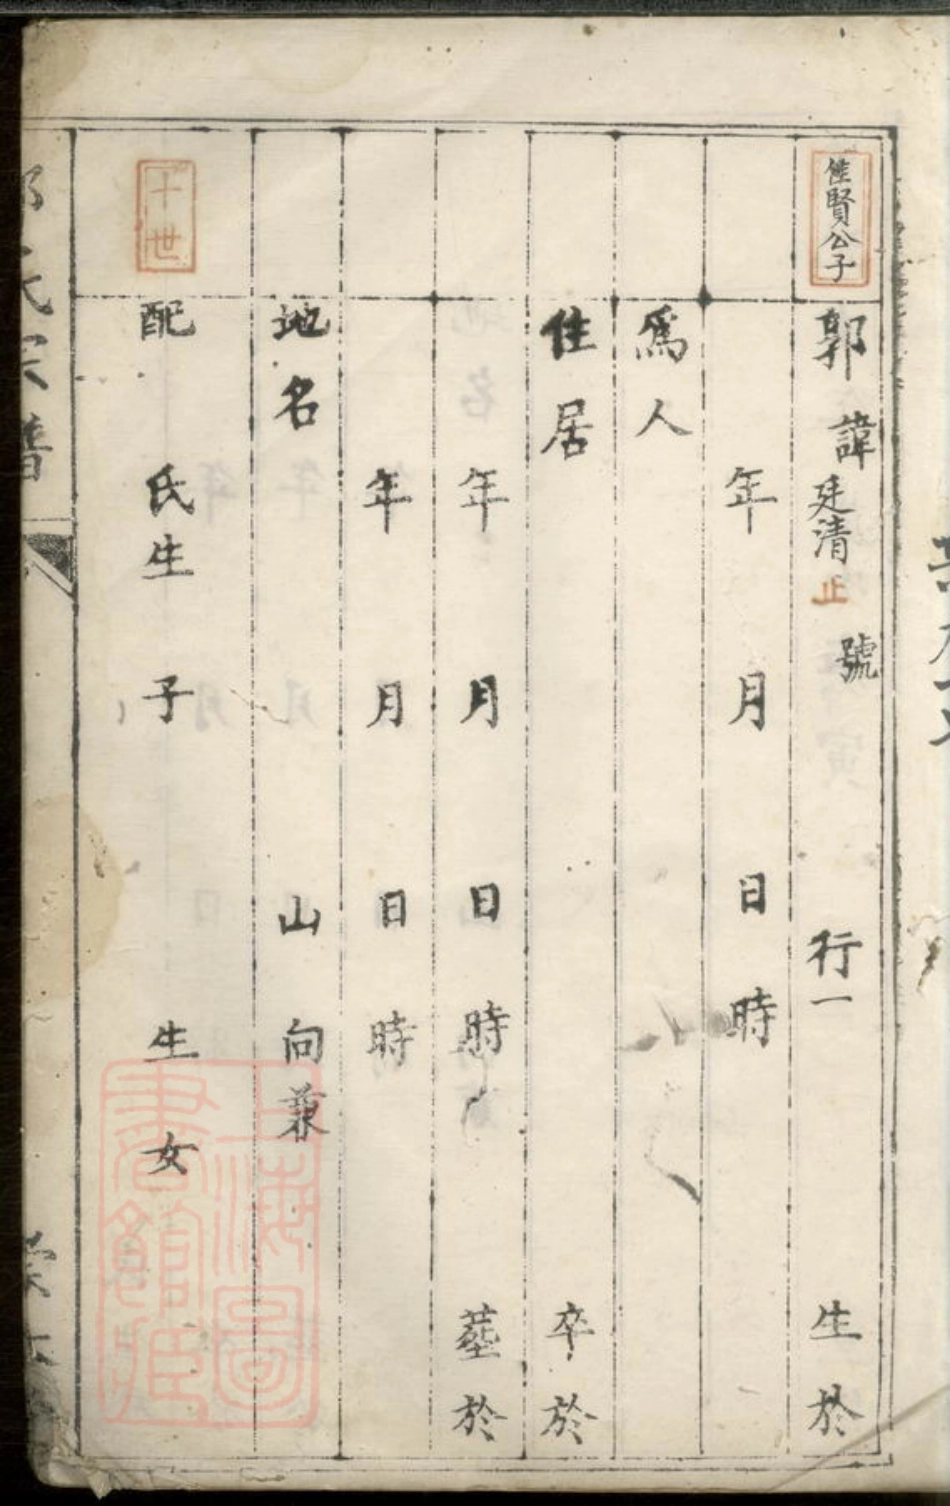 佳賢公子
郭 諱廷清 止 號 行一 生於
年 月 日 時
爲人
住居 卒於
年 月 日 時 塟於
年 月 日 時
地名 山 向兼
十世
配 氏生 子 生 女
氏宗譜
上海圖
書館藏